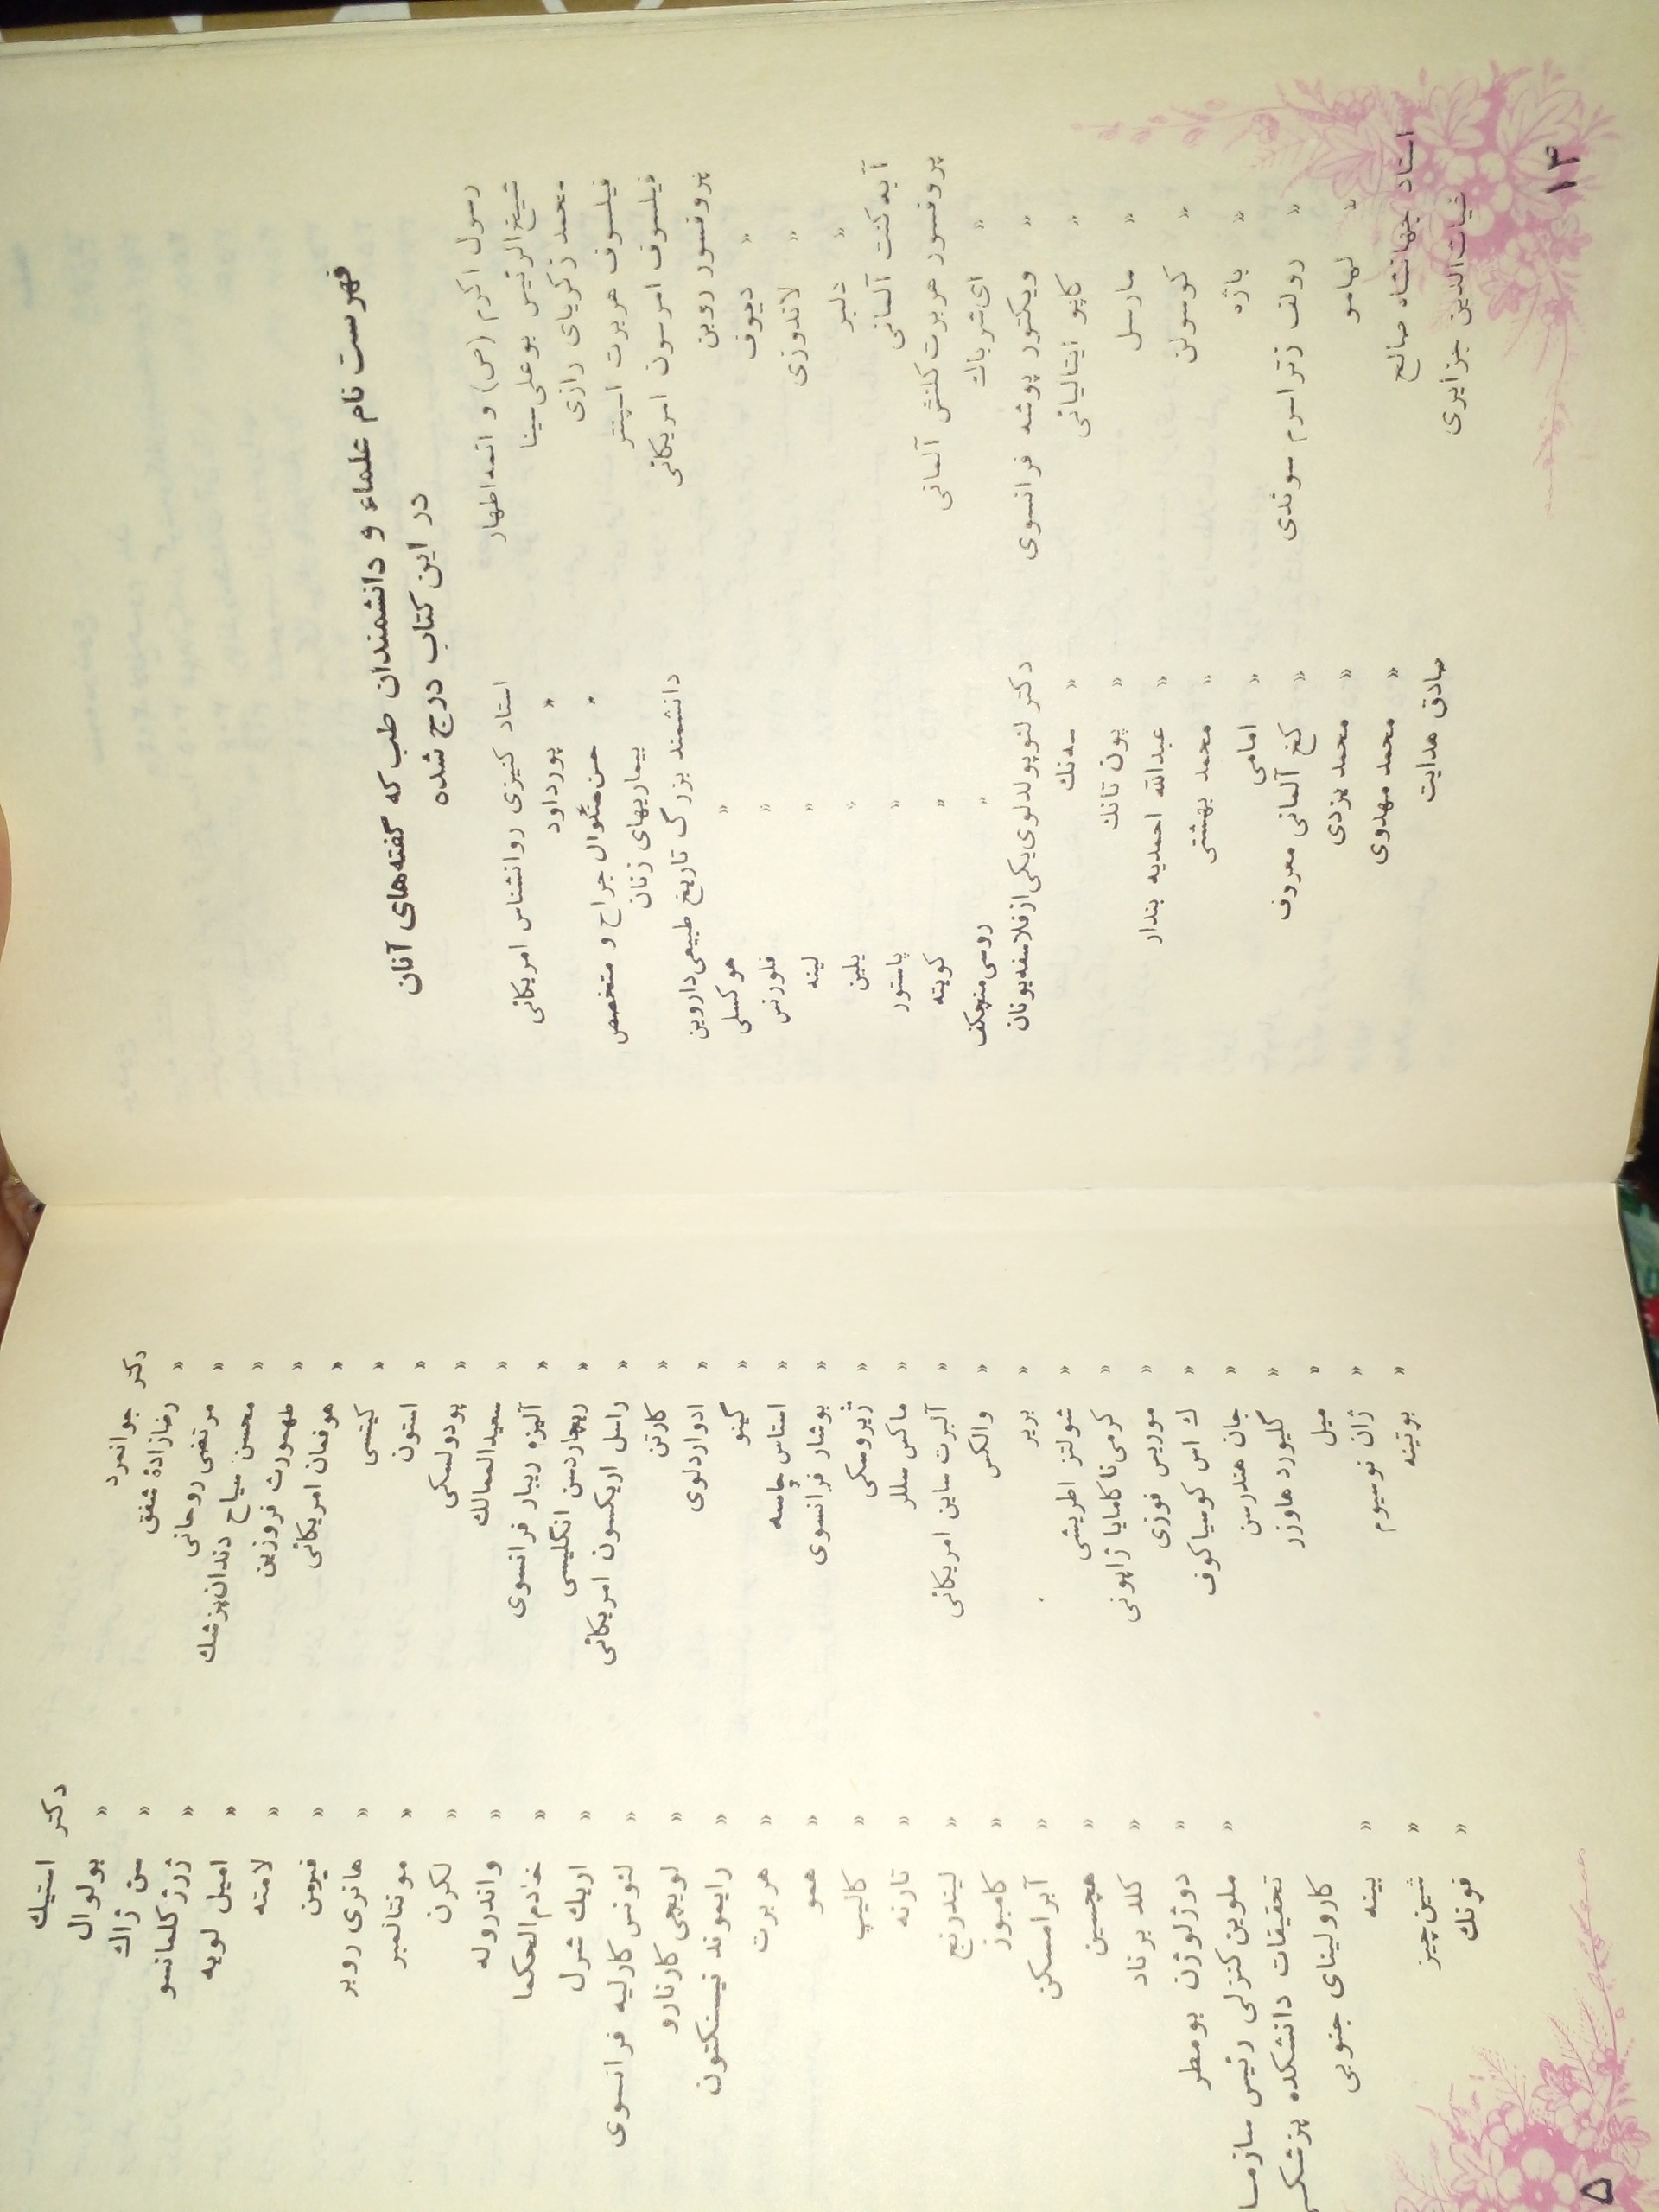 فهرست نام علماء و دانشمندان طب که گفته‌های آنان
در این کتاب درج شده
رسول اکرم (ص) و ائمه اطهار
شیخ‌الرئیس بوعلی سینا
محمد زکریای رازی
فیلسوف هربرت اسپنتر
فیلسوف امرسون امریکائی
پروفسور روبن
» دیوف
» لاندوزی
» دلبر
آبه کنت آلمانی
پروفسور هربرت کلنش آلمانی
» ای شرباك
» ویکتور پوشه فرانسوی
» کاپو ایتالیائی
» مارسل
» کوسولن
» باژه
» رولف زتراسرم سوئدی
» لهامو
استاد جهانشاه صالح
غیاث‌الدین جزایری
۱۴
استاد کنیزی روانشناس امریکائی
» پورداود
» حسن مثگوال جراح و متخصص
بیماریهای زنان
دانشمند بزرگ تاریخ طبیعی داروین
» هوکسلی
» فلورنس
» لینه
» پلین
» پاستور
» کویته
» روسی منچکف
دکتر لئوپولدلوی یکی از فلاسفه یونان
» مه‌نك
» یون تانك
» عبدالله احمدیه بندار
» محمد بهشتی
» امامی
» کخ آلمانی معروف
» محمد یزدی
» محمد مهدوی
صادق هدایت
دکتر جوانمرد
» رضازادهٔ شفق
» مرتضی روحانی
» محسن سیاح دندان‌پزشك
» طهمورث فروزین
» هوفمان امریکائی
» کیتسی
» استون
» پودولسکی
» سعیدالممالك
» آلیزه ریبار فرانسوی
» ریچاردسن انگلیسی
» راسل اریکسون امریکائی
» کارتن
» ادواردلوی
» گینو
» استاس چاسه
» بوشار فرانسوی
» ژیروسکی
» ماکس سللر
» آلبرت ساین امریکائی
» والکس
» بریر
» شولتز اطریشی
» کرمی ناکامایا ژاپونی
» موریس فوزی
» ك اس کوسیاکوف
» جان هندرسن
» گلیورد هاوزر
» میل
» ژان نوسیوم
» بوتینه
دکتر استیك
» بولوال
» سن ژاك
» ژرژ کلمانسو
» امیل لویه
» لامته
» فیرمن
» هانری روبر
» مونتالمبر
» لکرن
» واندروله
» خادم‌الحکما
» اریك شرل
» لئونس کارلیه فرانسوی
» لویجی کارنارو
» رایموند نیسنکتون
» هربرت
» همو
» کالیپ
» تارنه
» لیندرنج
» کامبوز
» آبرامسکن
» هچسین
» کلد برناد
» دوژلوژن بومطر
» ملوین کنزلی رئیس سازما
تحقیقات دانشکده پزشکی
کارولینای جنوبی
» بینه
» شین‌چیز
» فونك
۵